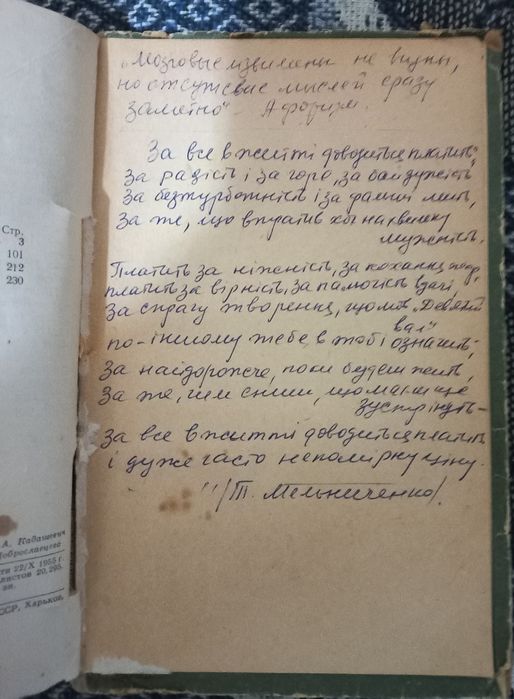 „Мозговые извилины не видны,
но отсутствие мыслей сразу
заметно" Афоризм.
За все в житті доводиться платить,
За радість і за горе, за байдужість
За безтурботність і за фальші мить,
За те, що втратив хоч на хвильку
мужність.
Платить за ніжність, за кохання
платить за вірність, за пам'ять вдачі,
За спрагу творення, що мов „Дев'ятий
вал"
по-іншому тебе в тобі означить,
За найдорожче, поки будеш жить,
За те, чим снив, що маєш ще
зустрінуть –
За все в житті доводиться платить
і дуже часто непомірну ціну.
/Т. Мельниченко/.
Стр.
3
101
212
230
А. Кадашевич
Доброславцева
ти 22/X 1955 г.
листов 20,295.
зп.
ССР, Харьков,